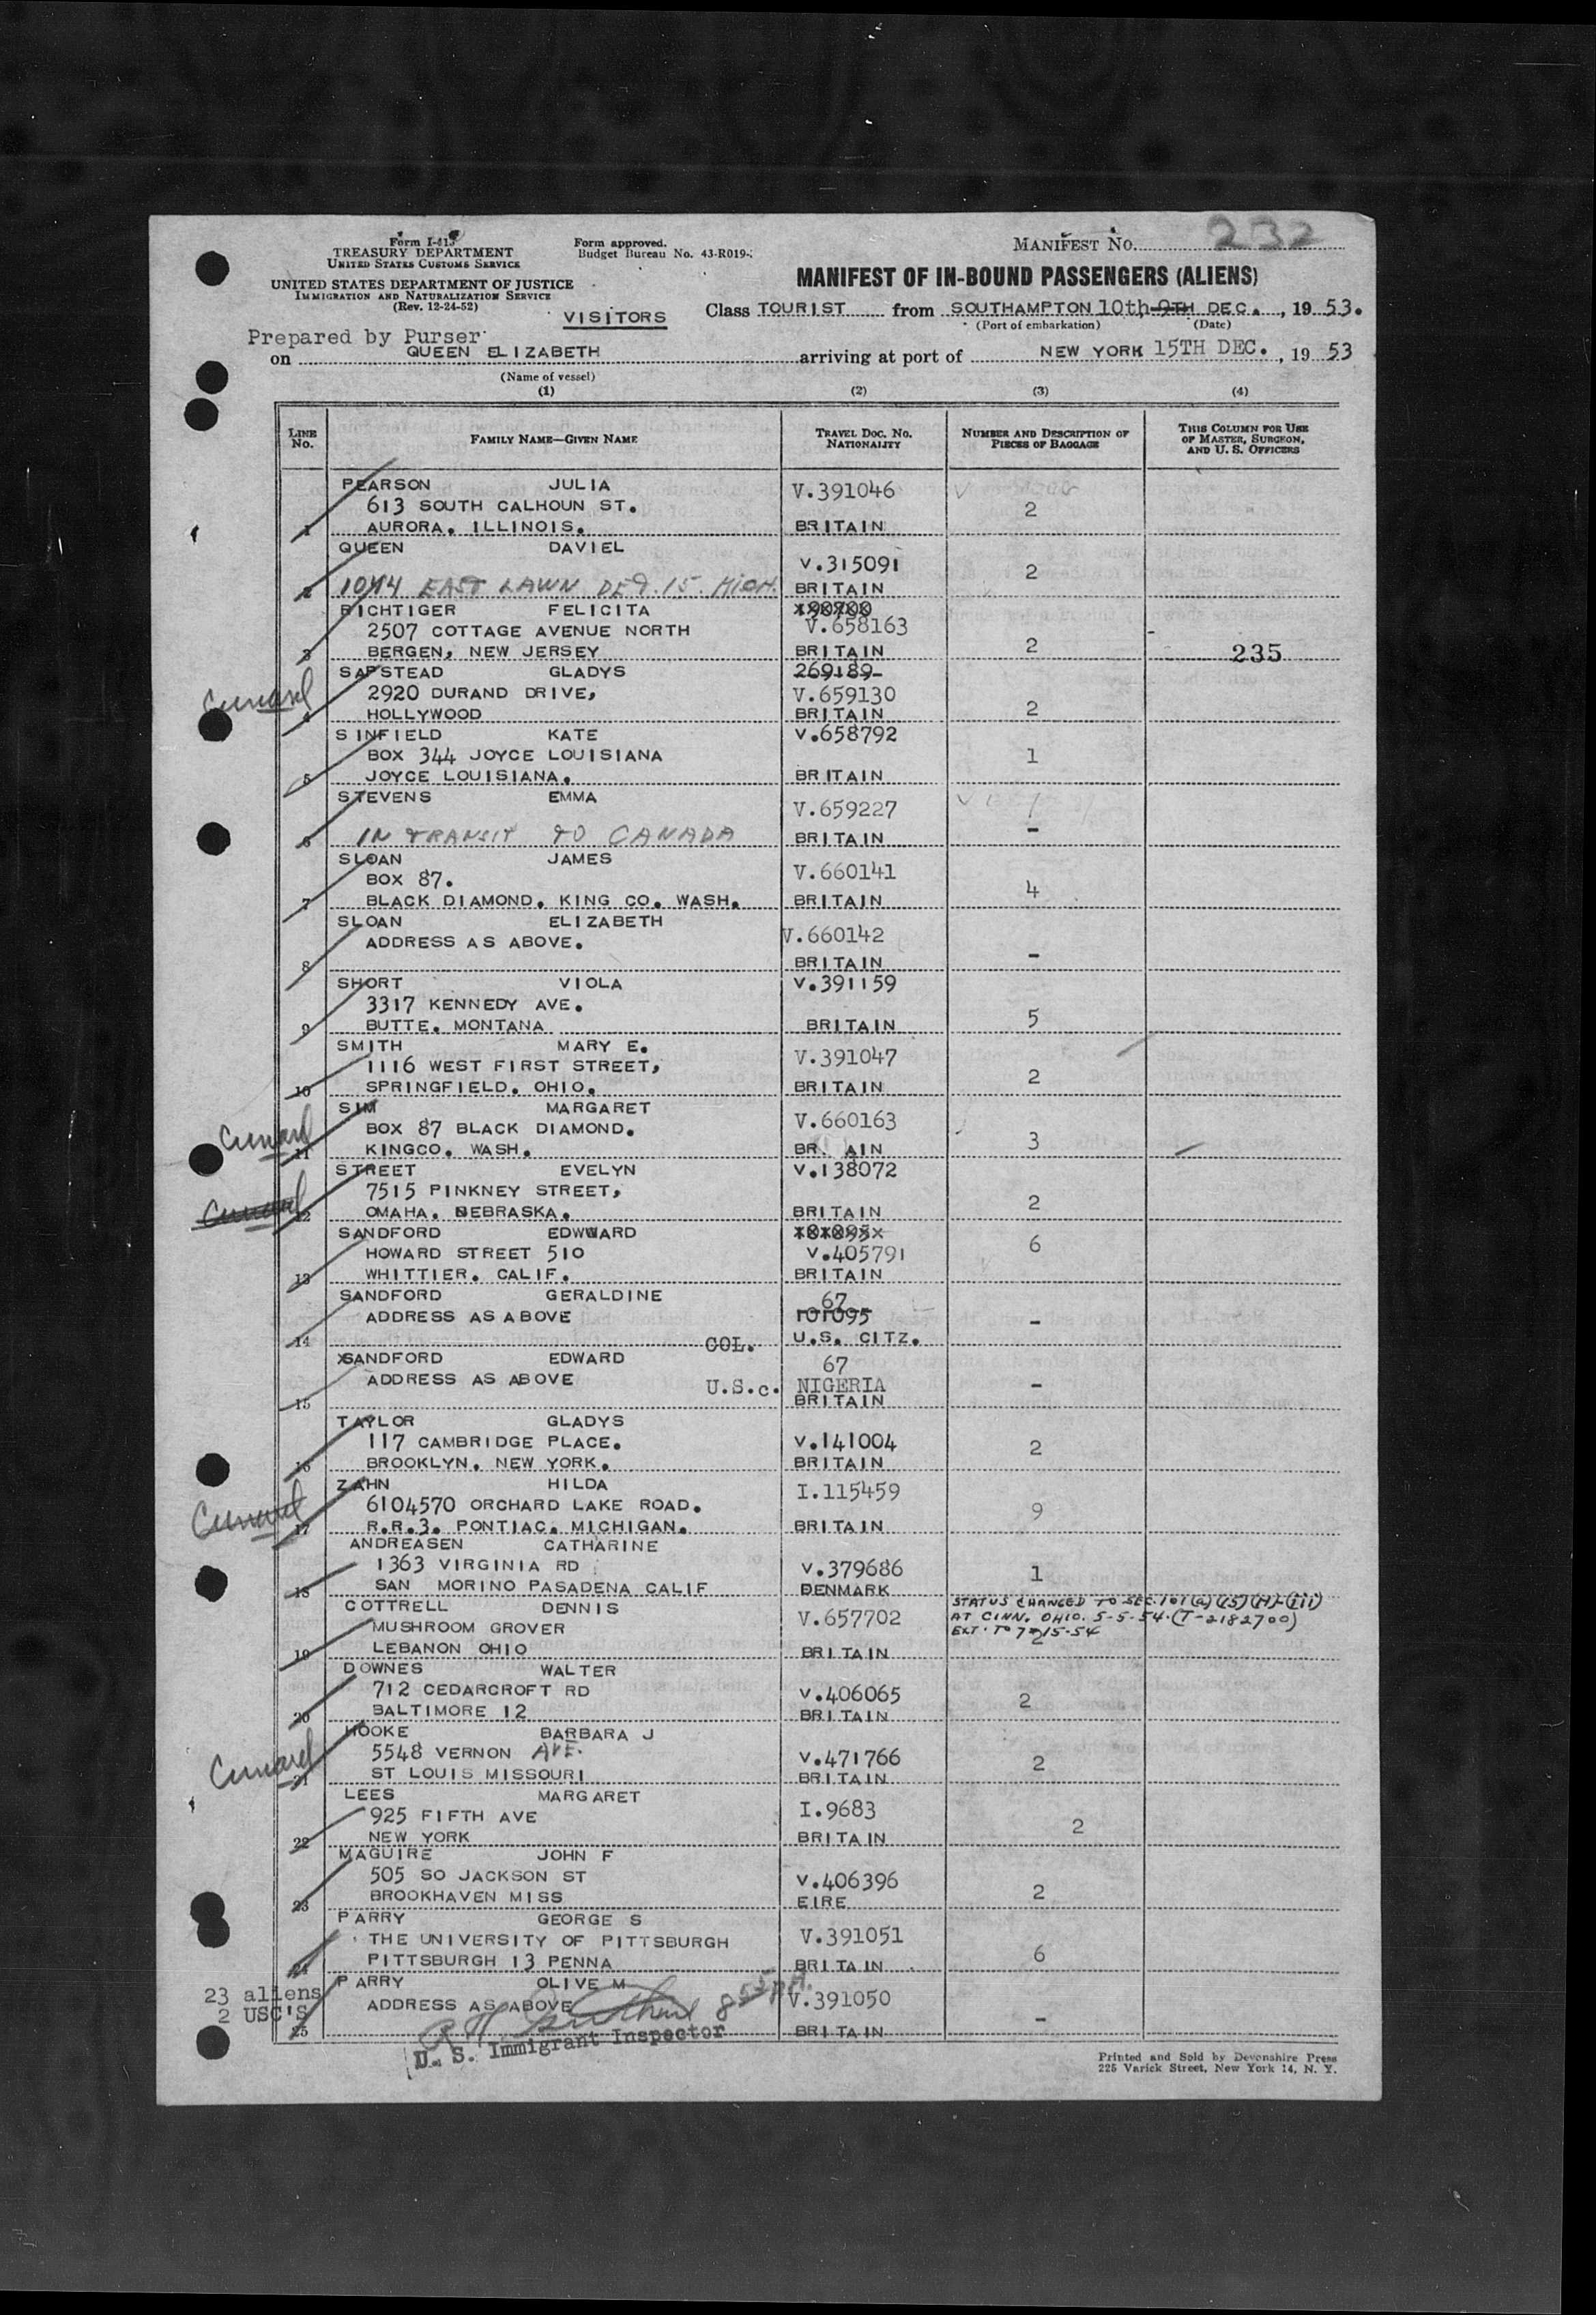 Form I-415
TREASURY DEPARTMENT
UNITED STATES CUSTOMS SERVICE
UNITED STATES DEPARTMENT OF JUSTICE
IMMIGRATION AND NATURALIZATION SERVICE
(Rev. 12-24-52)
Form approved.
Budget Bureau No. 43-R019-
MANIFEST NO. 232
MANIFEST OF IN-BOUND PASSENGERS (ALIENS)
VISITORS
Class TOURIST from SOUTHAMPTON 10th 9TH DEC. , 19 53.
(Port of embarkation) (Date)
Prepared by Purser
on QUEEN ELIZABETH arriving at port of NEW YORK 15TH DEC. , 19 53
(Name of vessel)
(1) (2) (3) (4)
LINE No. FAMILY NAME—GIVEN NAME TRAVEL DOC. NO. NATIONALITY NUMBER AND DESCRIPTION OF PIECES OF BAGGAGE THIS COLUMN FOR USE OF MASTER, SURGEON, AND U. S. OFFICERS
PEARSON JULIA V.391046
613 SOUTH CALHOUN ST. 2
1 AURORA. ILLINOIS. BRITAIN
QUEEN DAVIEL
V.315091 2
2 1044 EAST LAWN DET. 15. MICH. BRITAIN
BICHTIGER FELICITA
2507 COTTAGE AVENUE NORTH V.658163
3 BERGEN, NEW JERSEY BRITAIN 2 235
SAPSTEAD GLADYS 269189
Cunard 2920 DURAND DRIVE, V.659130
4 HOLLYWOOD BRITAIN 2
SINFIELD KATE V.658792
BOX 344 JOYCE LOUISIANA 1
5 JOYCE LOUISIANA. BRITAIN
STEVENS EMMA V.659227
6 IN TRANSIT TO CANADA BRITAIN -
SLOAN JAMES V.660141
BOX 87. 4
7 BLACK DIAMOND. KING CO. WASH. BRITAIN
SLOAN ELIZABETH V.660142
ADDRESS AS ABOVE.
8 BRITAIN -
SHORT VIOLA V.391159
3317 KENNEDY AVE.
9 BUTTE. MONTANA BRITAIN 5
SMITH MARY E. V.391047
1116 WEST FIRST STREET, 2
10 SPRINGFIELD. OHIO. BRITAIN
SIM MARGARET V.660163
Cunard BOX 87 BLACK DIAMOND. 3
11 KINGCO. WASH. BR. AIN
STREET EVELYN V.138072
Cunard 7515 PINKNEY STREET, 2
12 OMAHA. NEBRASKA. BRITAIN
SANDFORD EDWWARD
HOWARD STREET 510 V.405791 6
13 WHITTIER. CALIF. BRITAIN
SANDFORD GERALDINE 67
ADDRESS AS ABOVE 101095 -
14 COL. U.S. CITZ.
XSANDFORD EDWARD 67
ADDRESS AS ABOVE U.S.c. NIGERIA -
15 BRITAIN
TAYLOR GLADYS
117 CAMBRIDGE PLACE. V.141004 2
16 BROOKLYN. NEW YORK. BRITAIN
ZAHN HILDA I.115459
Cunard 6104570 ORCHARD LAKE ROAD. 9
17 R.R.3. PONTIAC. MICHIGAN. BRITAIN
ANDREASEN CATHARINE
1363 VIRGINIA RD V.379686 1
18 SAN MORINO PASADENA CALIF DENMARK
COTTRELL DENNIS V.657702 STATUS CHANGED TO SEC. 101(a)(15)(H)-(iii)
MUSHROOM GROVER AT CINN. OHIO. 5-5-54. (T-2182700)
19 LEBANON OHIO BRITAIN EXT. TO 7-15-54 2
DOWNES WALTER
712 CEDARCROFT RD V.406065 2
20 BALTIMORE 12 BRITAIN
HOOKE BARBARA J
Cunard 5548 VERNON AVE. V.471766 2
21 ST LOUIS MISSOURI BRITAIN
LEES MARGARET
925 FIFTH AVE I.9683 2
22 NEW YORK BRITAIN
MAGUIRE JOHN F
505 SO JACKSON ST V.406396 2
23 BROOKHAVEN MISS EIRE
PARRY GEORGE S
THE UNIVERSITY OF PITTSBURGH V.391051 6
24 PITTSBURGH 13 PENNA BRITAIN
PARRY OLIVE M
23 aliens
2 USC'S
ADDRESS AS ABOVE V.391050 -
25 BRITAIN
U. S. Immigrant Inspector
Printed and Sold by Devonshire Press
225 Varick Street, New York 14, N. Y.